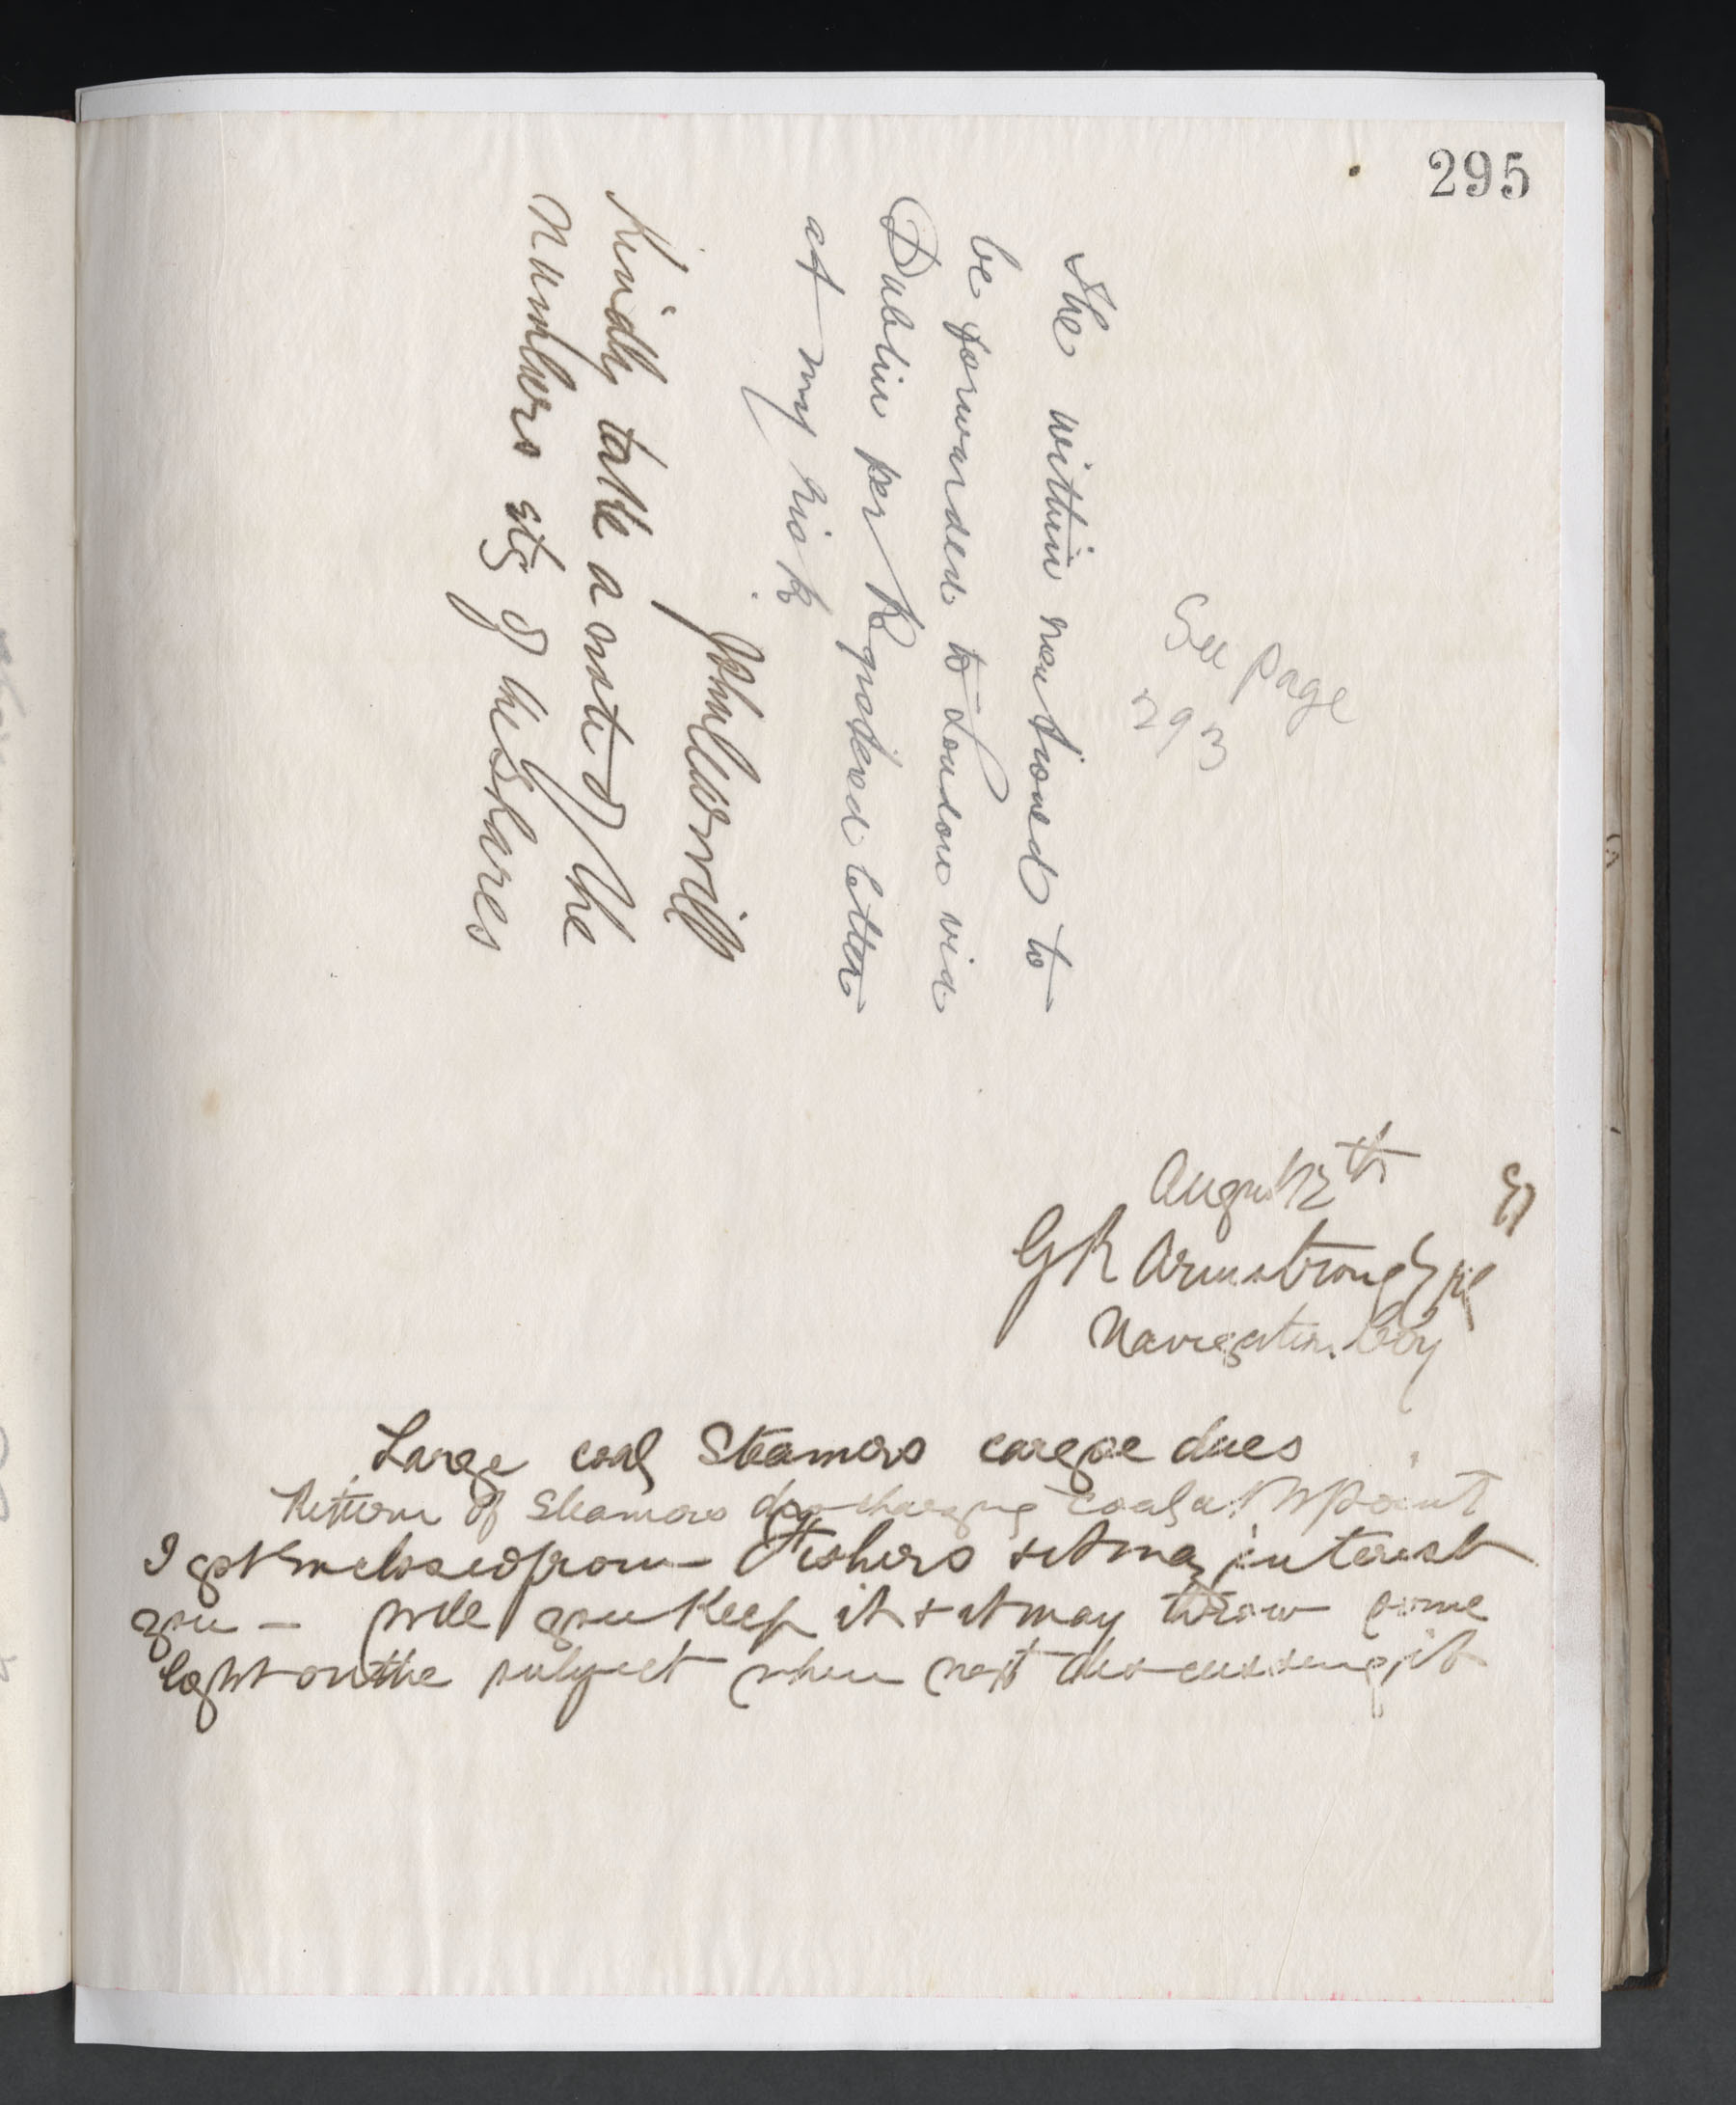 295
See page
293
The within mentioned to
be forwarded to London via
Dublin per Registered letter
at my risk
Kindly take a note of the
Numbers etc of the Shares
August 12th
G R Armstrong
Navigation Coy
Large coal Steamers cargoe dues
Return of Steamers discharging coal at Npoint
I got enclosed from Fishers & it may interest
you - will you keep it & it may throw some
light on the subject when next discussing it